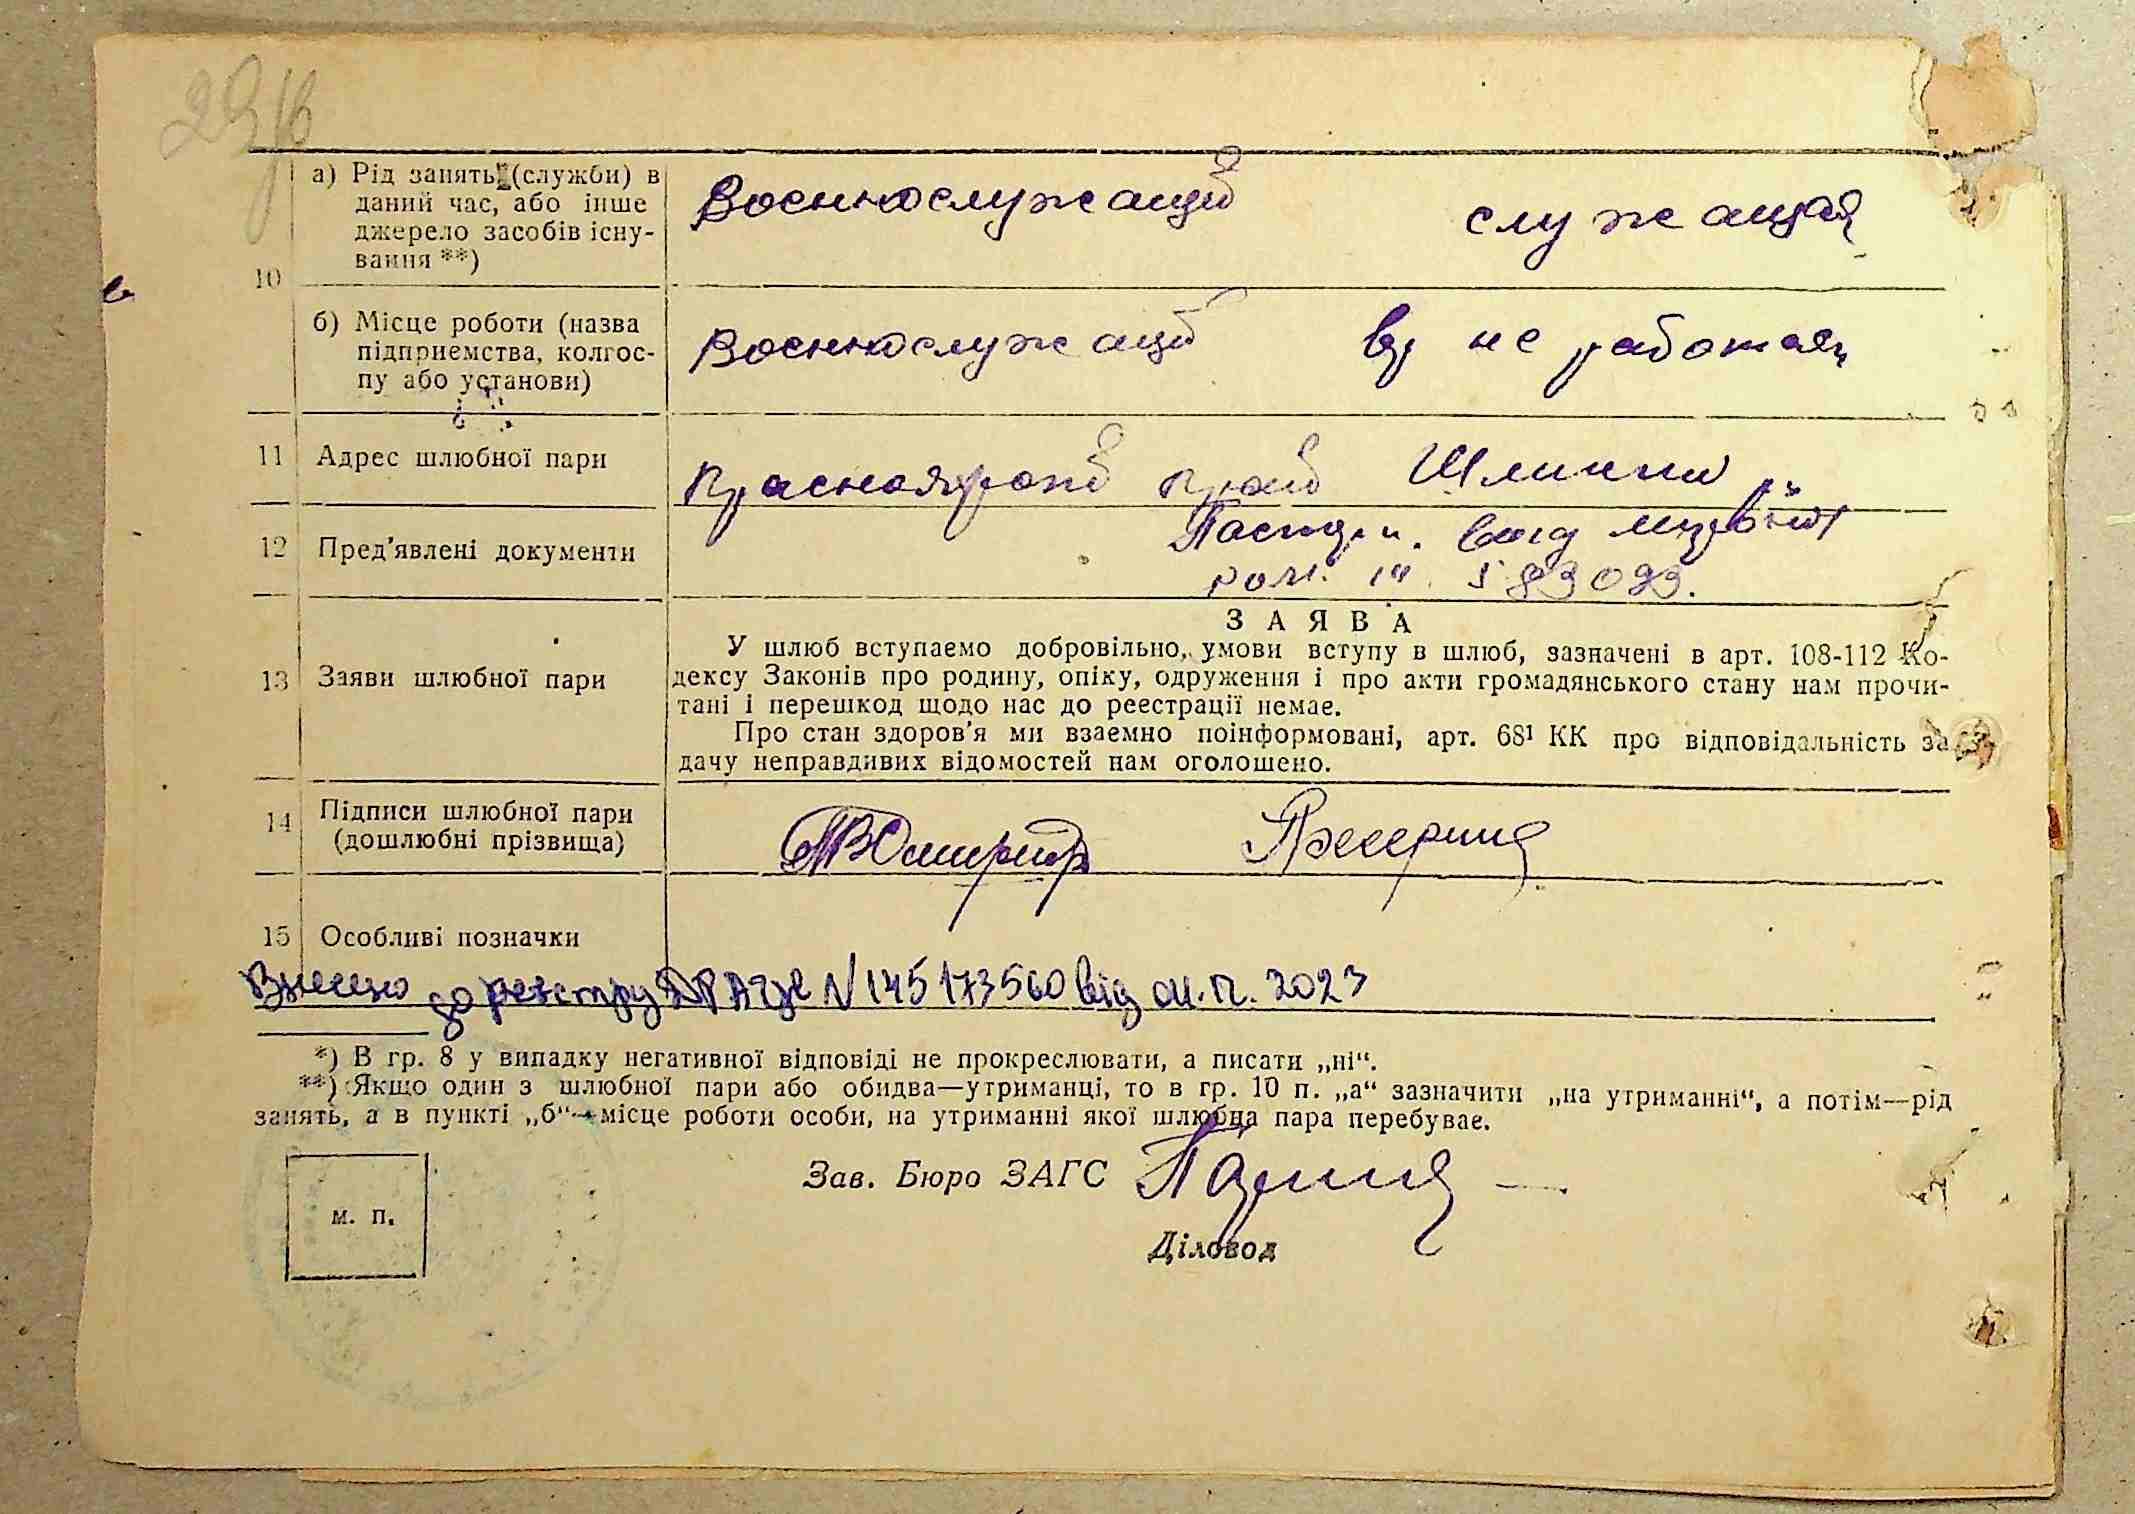 а) Рід занять (служби) в
даний час, або інше
джерело засобів існу-
вання **)
Военнослужащий служащая
10
б) Місце роботи (назва
підприємства, колгос-
пу або установи)
Военнослужащий не работает
11 Адрес шлюбної пари
Красноярский край
12 Пред'явлені документи
13 Заяви шлюбної пари
ЗАЯВА
У шлюб вступаємо добровільно, умови вступу в шлюб, зазначені в арт. 108-112 Ко-
дексу Законів про родину, опіку, одруження і про акти громадянського стану нам прочи-
тані і перешкод щодо нас до реєстрації немає.
Про стан здоров'я ми взаємно поінформовані, арт. 68¹ КК про відповідальність за
дачу неправдивих відомостей нам оголошено.
14 Підписи шлюбної пари
(дошлюбні прізвища)
15 Особливі позначки
Внесено до реєстру ДРАЦС N 145173560 від 2023
*) В гр. 8 у випадку негативної відповіді не прокреслювати, а писати „ні“.
**) Якщо один з шлюбної пари або обидва—утриманці, то в гр. 10 п. „а“ зазначити „на утриманні“, а потім—рід
занять, а в пункті „б“—місце роботи особи, на утриманні якої шлюбна пара перебуває.
Зав. Бюро ЗАГС
м. п.
Діловод